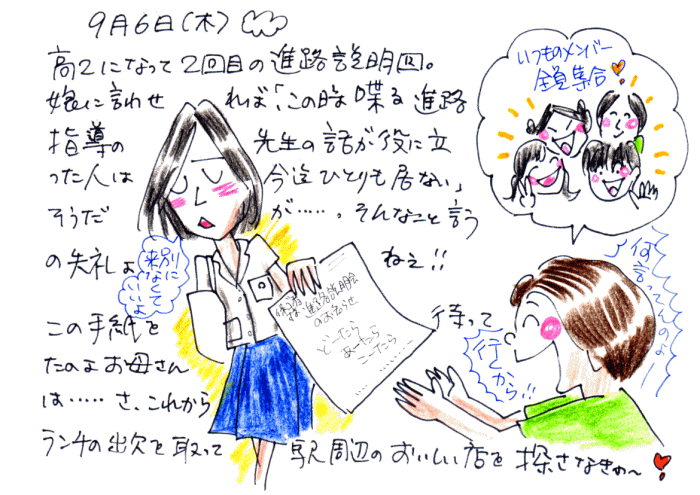 9月6日(木)
高2になって2回目の進路説明回。
娘に言わせれば「この時喋る進路
指導の先生の話が役に立
った人は今迄ひとりも居ない」
そうだが……。そんなこと言う
の失礼よねぇ!!
この手紙を待って
たのよお母さん
は……さ、これから
ランチの出欠を取って駅周辺のおいしい店を探さなきゃ〜
いつものメンバー
全員集合
別に
来なくて
いいよ
進路説明会
のお知らせ
どーたら
あーたら
こーたら
行く
から!!
何
言ってんのよー